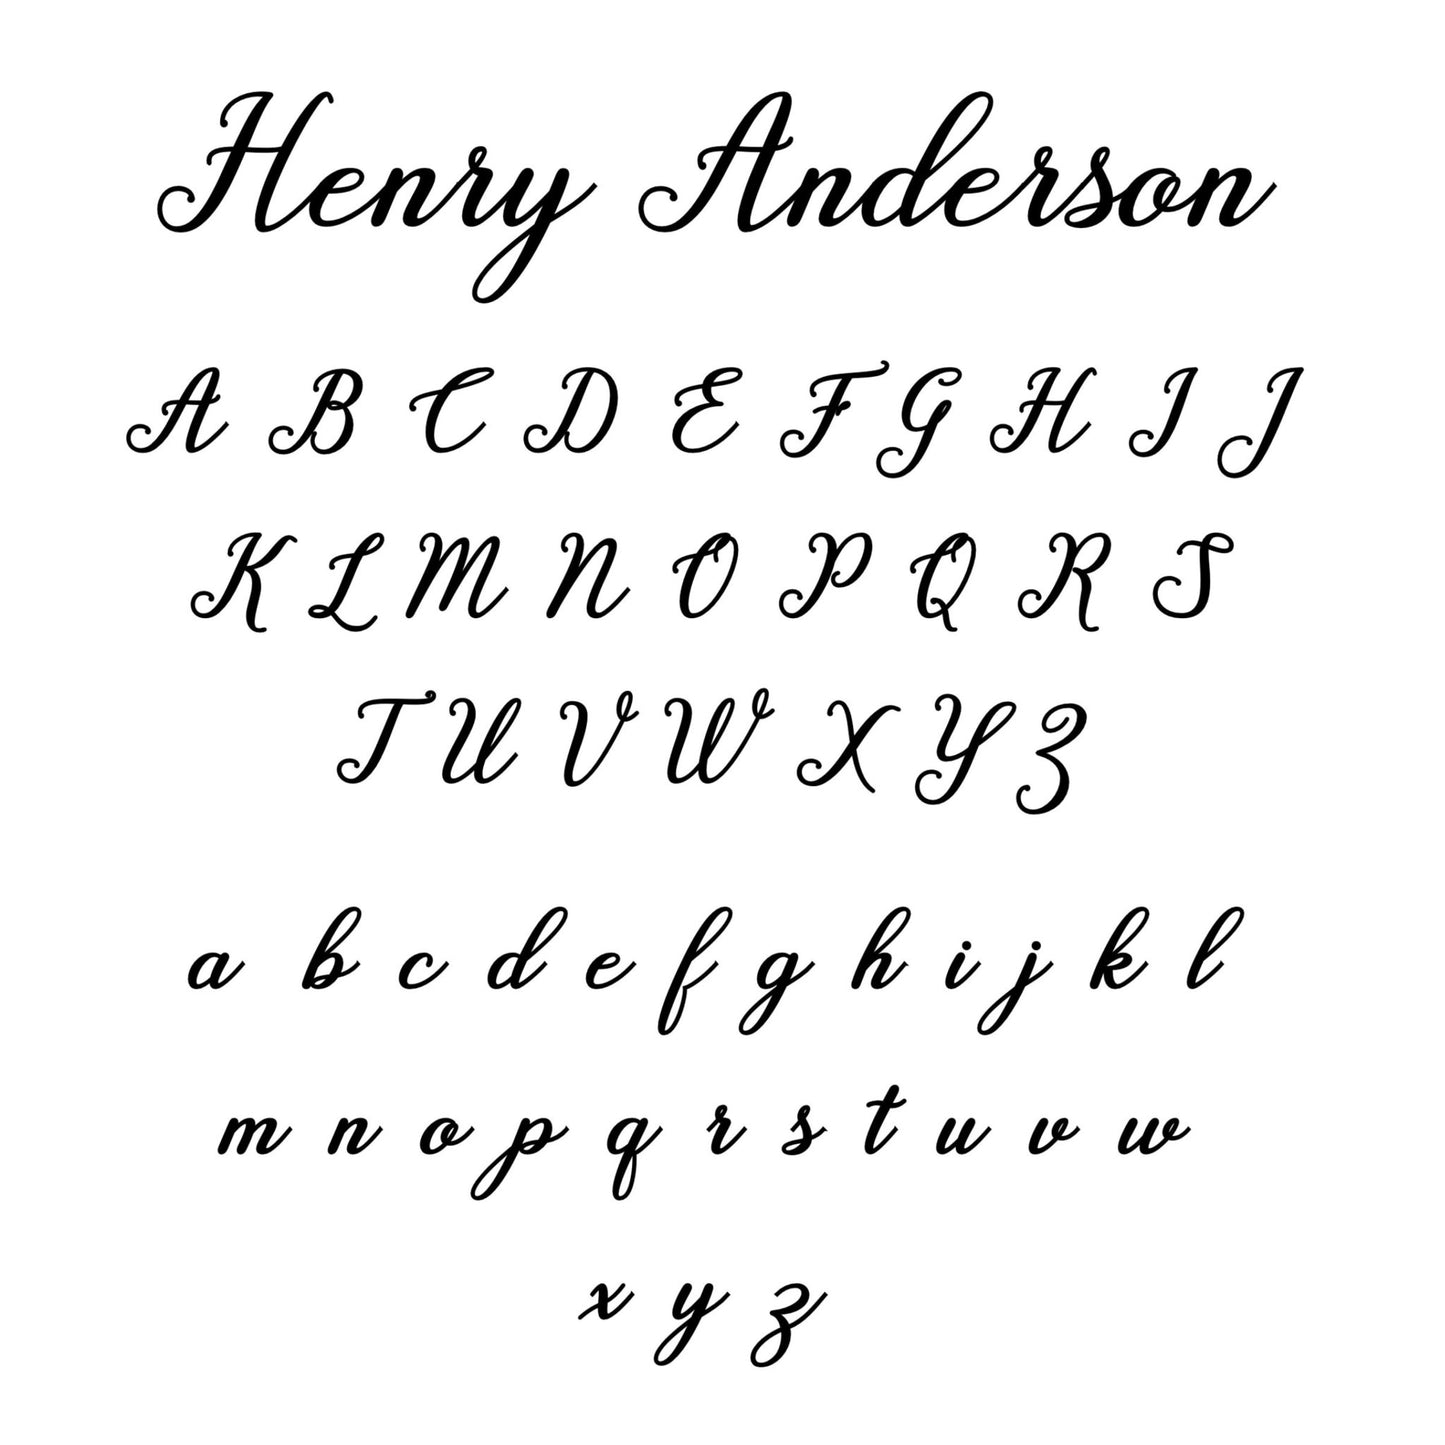 Henry Anderson
A B C D E F G H I J
K L M N O P Q R S
T U V W X Y Z
a b c d e f g h i j k l
m n o p q r s t u v w
x y z